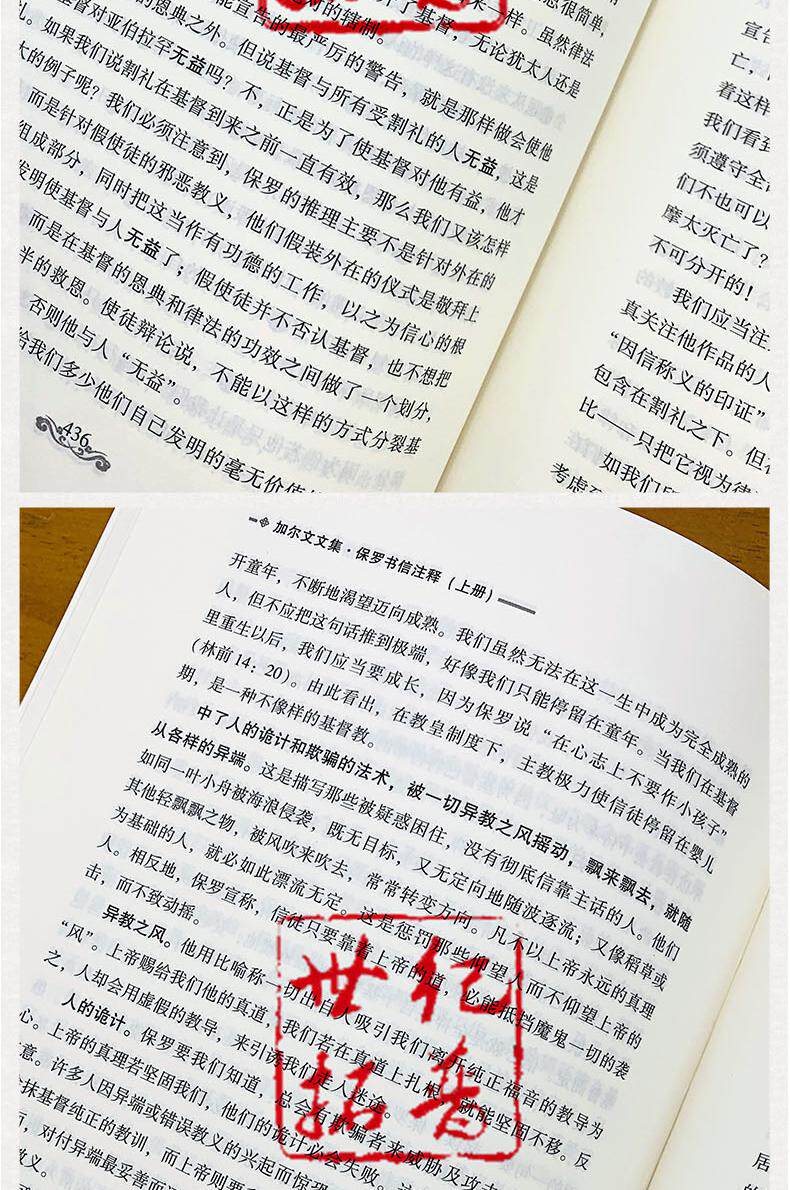 很简单,
一样。虽然律法
了基督,无论犹太人还是
的辖制。
能宣告的最严厉的警告,就是那样做会使他
的恩典之外。但说基督与所有受割礼的人无益,这是
基督对亚伯拉罕无益吗?不,正是为了使基督对他有益,他才
礼。如果我们说割礼在基督到来之前一直有效,那么我们又该怎样
大的例子呢?我们必须注意到,保罗的推理主要不是针对外在的
而是针对假使徒的邪恶教义,他们假装外在的仪式是敬拜上
组成部分,同时把这当作有功德的工作,以之为信心的根
发明使基督与人无益了;假使徒并不否认基督,也不想把
而是在基督的恩典和律法的功效之间做了一个划分,
半的救恩。使徒辩论说,不能以这样的方式分裂基
否则他与人“无益”。
给我们多少他们自己发明的毫无价值
436
宣告
亡,
着这样
我们看到
须遵守全
们不也可以
摩太灭亡了?
不可分开的!
我们应当注
真关注他作品的人
“因信称义的印证”
包含在割礼之下。但
比——只把它视为律
如我们
考虑
加尔文文集·保罗书信注释(上册)
开童年,不断地渴望迈向成熟。我们虽然无法在这一生中成为完全成熟的
人,但不应把这句话推到极端,好像我们只能停留在童年。当我们在基督
里重生以后,我们应当要成长,因为保罗说“在心志上不要作小孩子”
(林前14:20)。由此看出,在教皇制度下,主教极力使信徒停留在婴儿
期,是一种不像样的基督教。
中了人的诡计和欺骗的法术,被一切异教之风摇动,飘来飘去,就随
从各样的异端。这是描写那些被疑惑困住,没有彻底信靠主话的人。他们
如同一叶小舟被海浪侵袭,既无目标,又无定向地随波逐流;又像稻草或
其他轻飘飘之物,被风吹来吹去,常常转变方向。凡不以上帝永远的真理
为基础的人,就必如此漂流无定。这是惩罚那些仰望人而不仰望上帝的
人。相反地,保罗宣称,信徒只要靠着上帝的道,必能抵挡魔鬼一切的袭
击,而不致动摇。
异教之风。他用比喻称一切出自人吸引我们离开纯正福音的教导为
“风”。上帝赐给我们他的真道,我们若在真道上扎根,就能坚固不移。反
之,人却会用虚假的教导,来引诱我们走入迷途。
人的诡计。保罗要我们知道,总会有欺骗者来威胁及攻
心。上帝的真理若坚固我们,他们的诡计必会失败。这
意。许多人因异端或错误教义的兴起而惊
抹基督纯正的教训,而上帝则要
对付异端最妥善而
教义。
世纪
拓普
居
的